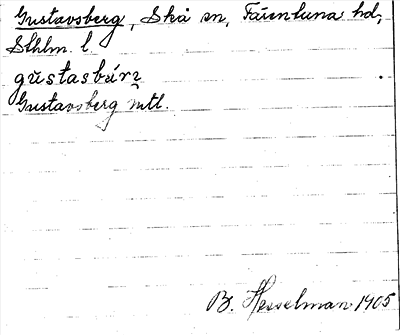 Gustavsberg, Skå sn, Färentuna hd,
Sthlms l.
gùstasbárj
Gustavsberg mtl.
B. Hesselman 1905